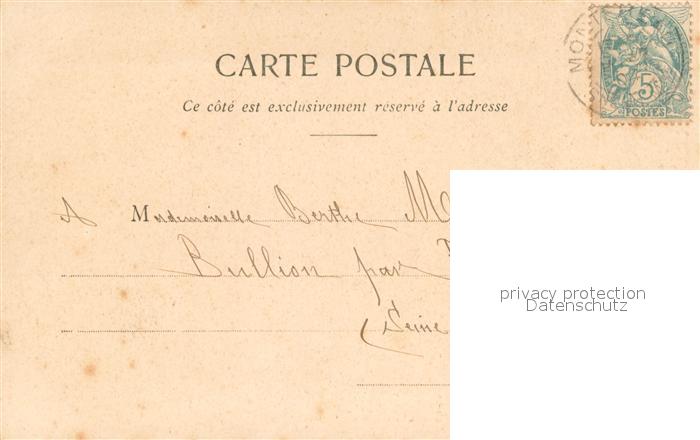 CARTE POSTALE
Ce côté est exclusivement réservé à l'adresse
5c
POSTES
A Mademoiselle Berthe M
Bullion par
(Seine
privacy protection
Datenschutz